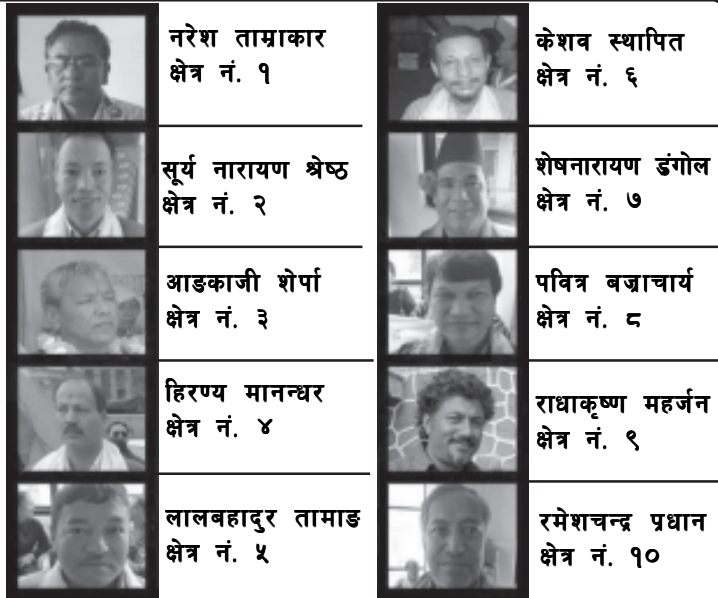 नरेश ताम्राकार
क्षेत्र नं. १
सूर्य नारायण श्रेष्ठ
क्षेत्र नं. २
आङकाजी शेर्पा
क्षेत्र नं. ३
हिरण्य मानन्धर
क्षेत्र नं. ४
लालबहादुर तामाङ
क्षेत्र नं. ५
केशव स्थापित
क्षेत्र नं. ६
शेषनारायण डंगोल
क्षेत्र नं. ७
पवित्र बज्राचार्य
क्षेत्र नं. ८
राधाकृष्ण महर्जन
क्षेत्र नं. ९
रमेशचन्द्र प्रधान
क्षेत्र नं. १०